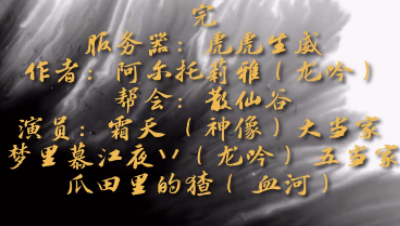 完
服务器：虎虎生威
作者：阿尔托莉雅（龙吟）
帮会：散仙谷
演员：霜天（神像）大当家
梦里慕江夜丷（龙吟）五当家
瓜田里的猹（血河）